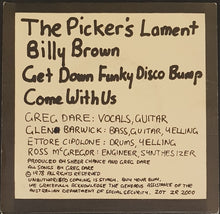 The Picker's Lament
Billy Brown
Get Down Funky Disco Bump
Come With Us
GREG DARE: VOCALS, GUITAR
GLEN BARWICK: BASS, GUITAR, YELLING
ETTORE CIPOLONE: DRUMS, YELLING
ROSS McGREGOR: ENGINEER, SYNTHESIZER
PRODUCED BY SHEER CHANCE AND GREG DARE
ALL SONGS BY GREG DARE
© 1978 ALL RIGHTS RESERVED.
UNAUTHORISED COPYING IS STINGY. BUY YOUR OWN.
WE GRATEFULLY ACKNOWLEDGE THE GENEROUS ASSISTANCE OF THE
AUSTRALIAN DEPARTMENT OF SOCIAL SECURITY. ZOT ZR 2000